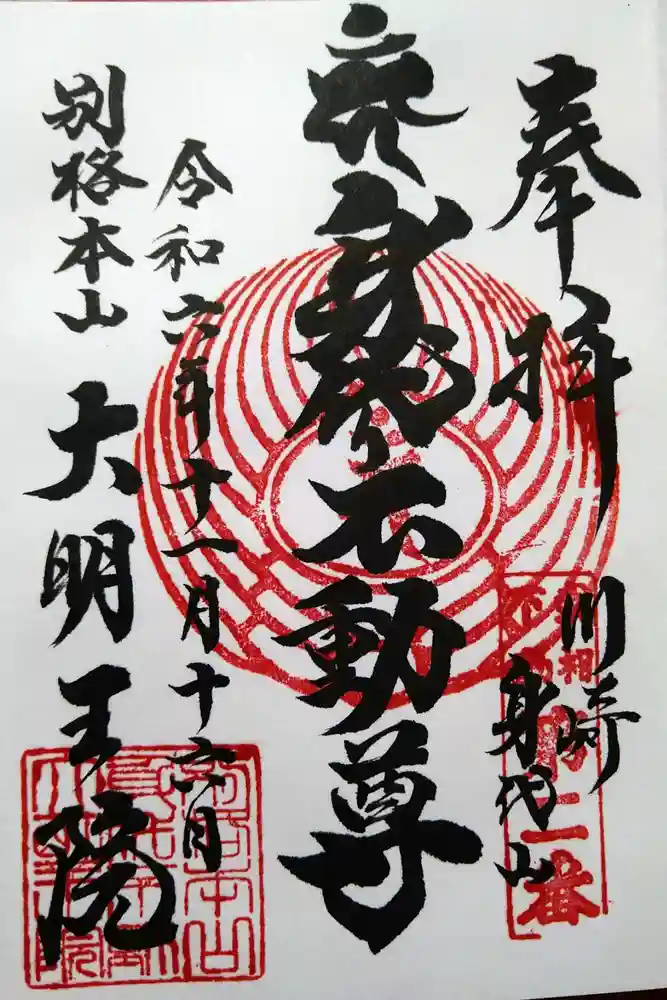 奉拝
川崎
身代山
身代り不動尊
令和六年十一月十六日
別格本山 大明王院
二番